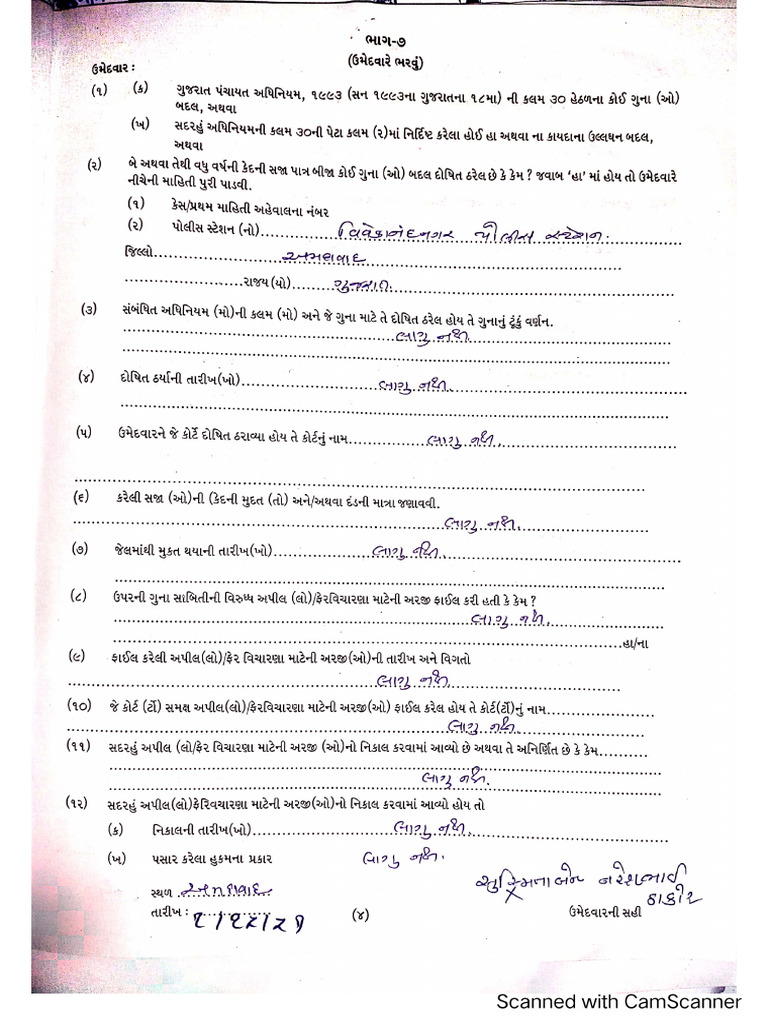 ભાગ-૭
(ઉમેદવારે ભરવું)
ઉમેદવાર :
(૧) (ક) ગુજરાત પંચાયત અધિનિયમ, ૧૯૯૩ (સન ૧૯૯૩ના ગુજરાતના ૧૮મા) ની કલમ ૩૦ હેઠળના કોઈ ગુના (ઓ)
બદલ, અથવા
(ખ) સદરહું અધિનિયમની કલમ ૩૦ની પેટા કલમ (૨)માં નિર્દિષ્ટ કરેલા હોઈ હા અથવા ના કાયદાના ઉલ્લઘન બદલ,
અથવા
(૨) બે અથવા તેથી વધુ વર્ષની કેદની સજા પાત્ર બીજા કોઈ ગુના (ઓ) બદલ દોષિત ઠરેલ છે કે કેમ ? જવાબ ‘હા’ માં હોય તો ઉમેદવારે
નીચેની માહિતી પુરી પાડવી.
(૧) કેસ/પ્રથમ માહિતી અહેવાલના નંબર
(૨) પોલીસ સ્ટેશન (નો)..........વિવેકાનંદનગર પોલીસ સ્ટેશન.
જિલ્લો..........અમદાવાદ
..........રાજ્ય(યો)..........ગુજરાત.
(૩) સંબંધિત અધિનિયમ (મો)ની કલમ (મો) અને જે ગુના માટે તે દોષિત ઠરેલ હોય તે ગુનાનું ટૂંકું વર્ણન.
લાગુ નથી
(૪) દોષિત ઠર્યાની તારીખ(ખો)..........લાગુ નથી.
(૫) ઉમેદવારને જે કોર્ટે દોષિત ઠરાવ્યા હોય તે કોર્ટનું નામ..........લાગુ નથી.
(૬) કરેલી સજા (ઓ)ની (કેદની મુદત (તો) અને/અથવા દંડની માત્રા જણાવવી.
લાગુ નથી.
(૭) જેલમાંથી મુકત થયાની તારીખ(ખો)..........લાગુ નથી.
(૮) ઉપરની ગુના સાબિતીની વિરુધ્ધ અપીલ (લો)/ફેરવિચારણા માટેની અરજી ફાઈલ કરી હતી કે કેમ ?
લાગુ નથી.
..........હા/ના
(૯) ફાઈલ કરેલી અપીલ(લો)/ફેર વિચારણા માટેની અરજી(ઓ)ની તારીખ અને વિગતો
લાગુ નથી
(૧૦) જે કોર્ટ (ર્ટો) સમક્ષ અપીલ(લો)/ફેરવિચારણા માટેની અરજી(ઓ) ફાઈલ કરેલ હોય તે કોર્ટ(ર્ટો)નું નામ..........
લાગુ નથી
(૧૧) સદરહું અપીલ (લો/ફેર વિચારણા માટેની અરજી (ઓ)નો નિકાલ કરવામાં આવ્યો છે અથવા તે અનિર્ણિત છે કે કેમ..........
લાગુ નથી.
(૧૨) સદરહું અપીલ(લો)ફેરિવચારણા માટેની અરજી(ઓ)નો નિકાલ કરવામાં આવ્યો હોય તો
(ક) નિકાલની તારીખ(ખો)..........લાગુ નથી
(ખ) પસાર કરેલા હુકમના પ્રકાર લાગુ નથી.
સ્થળ અમદાવાદ
સુસ્મિતાબેન નરેશભાઈ
ઠાકોર
તારીખ : ૨/૧૨/૨૧ (૪) ઉમેદવારની સહી
Scanned with CamScanner